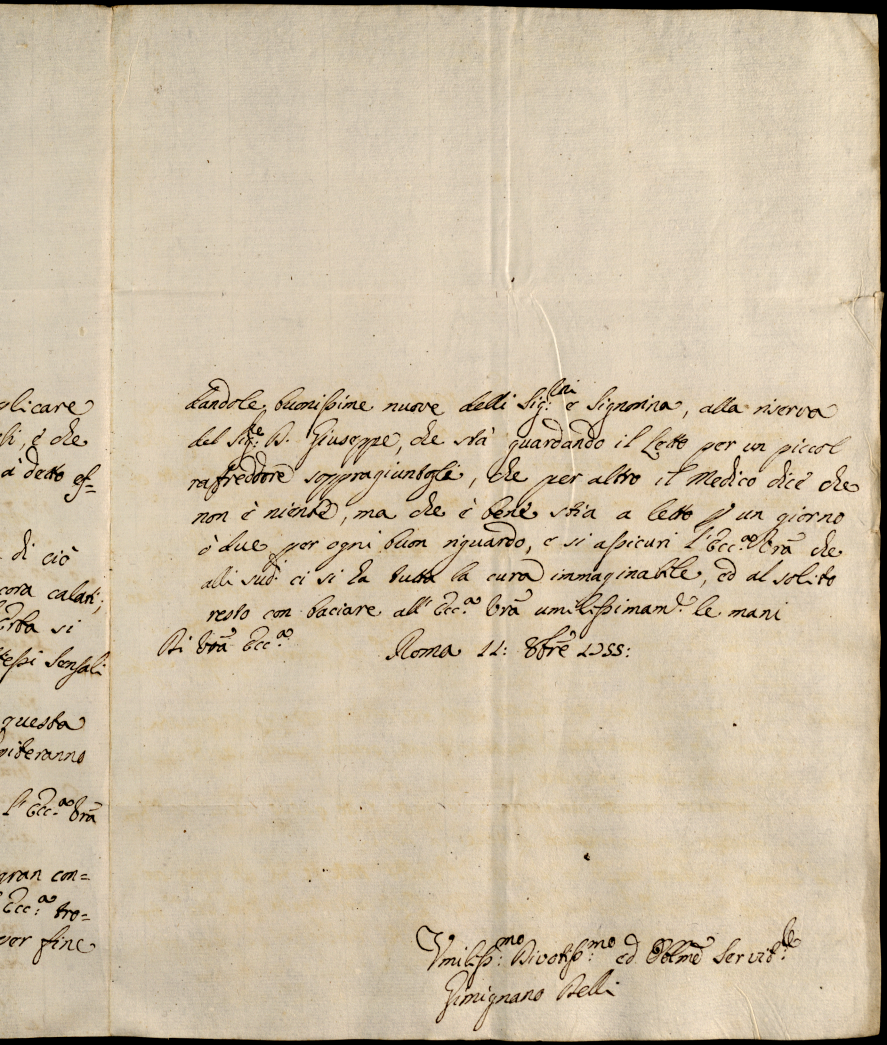 plicare
ssi, è che
à detto ef=
di ciò
cora calati;
Erba si
stessi Sensali
questa
miteranno
l'Ecc:ᵃ Vrã
gran con=
Ecc:ᵃ tro=
per fine
dandole buonissime nuove delli Sig:ʳⁱⁿⁱ e Signorina, alla riserva
del Sig:ʳᵉ D. Giuseppe, che stà guardando il Letto per un piccol
raffreddore soppragiuntogli, che per altro il Medico dice che
non è niente, ma che è bene stia a letto p un giorno
ò due per ogni buon riguardo, e si assicuri l'Ecc:ᵃ Vrã che
alli sud:ⁱ ci si hà tutta la cura immaginabile, ed al solito
resto con baciare all' Ecc:ᵃ Vrã umilissimam:ᵉ le mani
Di Vrã Ecc:ᵃ Roma 11: 8bře 1755:
Umiliss:ᵐᵒ Divotiss:ᵐᵒ ed Obl̃mo Servit:ʳᵉ
Gimignano Belli